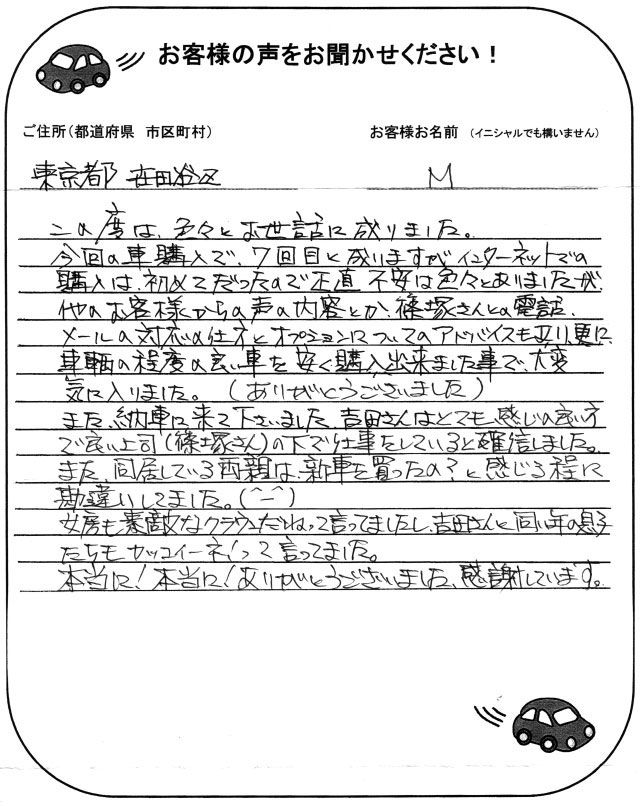 お客様の声をお聞かせください！
ご住所（都道府県　市区町村）
お客様お名前　（イニシャルでも構いません）
東京都 世田谷区
M
この度は、色々とお世話に成りました。
今回の車購入で、7回目と成りますがインターネットでの
購入は、初めてだったので正直 不安は色々とありましたが
他のお客様からの声の内容とか、篠塚さんとの電話、
メールの対応の仕方とオプションについてのアドバイスも有り、更に
車輌の程度の良い車を安く購入出来ました事で、大変
気に入りました。（ありがとうございました）
また、納車に来て下さいました、吉田さんはとても感じの良い方
で良い上司（篠塚さん）の下で仕事をしていると確信しました。
また、同居している両親は、新車を買ったの？と感じる程に
勘違いしてました。(^ー^)
女房も素敵なクラウンだねって言ってましたし、吉田さんと同い年の息子
たちもカッコイーネ！って言ってました。
本当に！本当に！ありがとうございました、感謝しています。